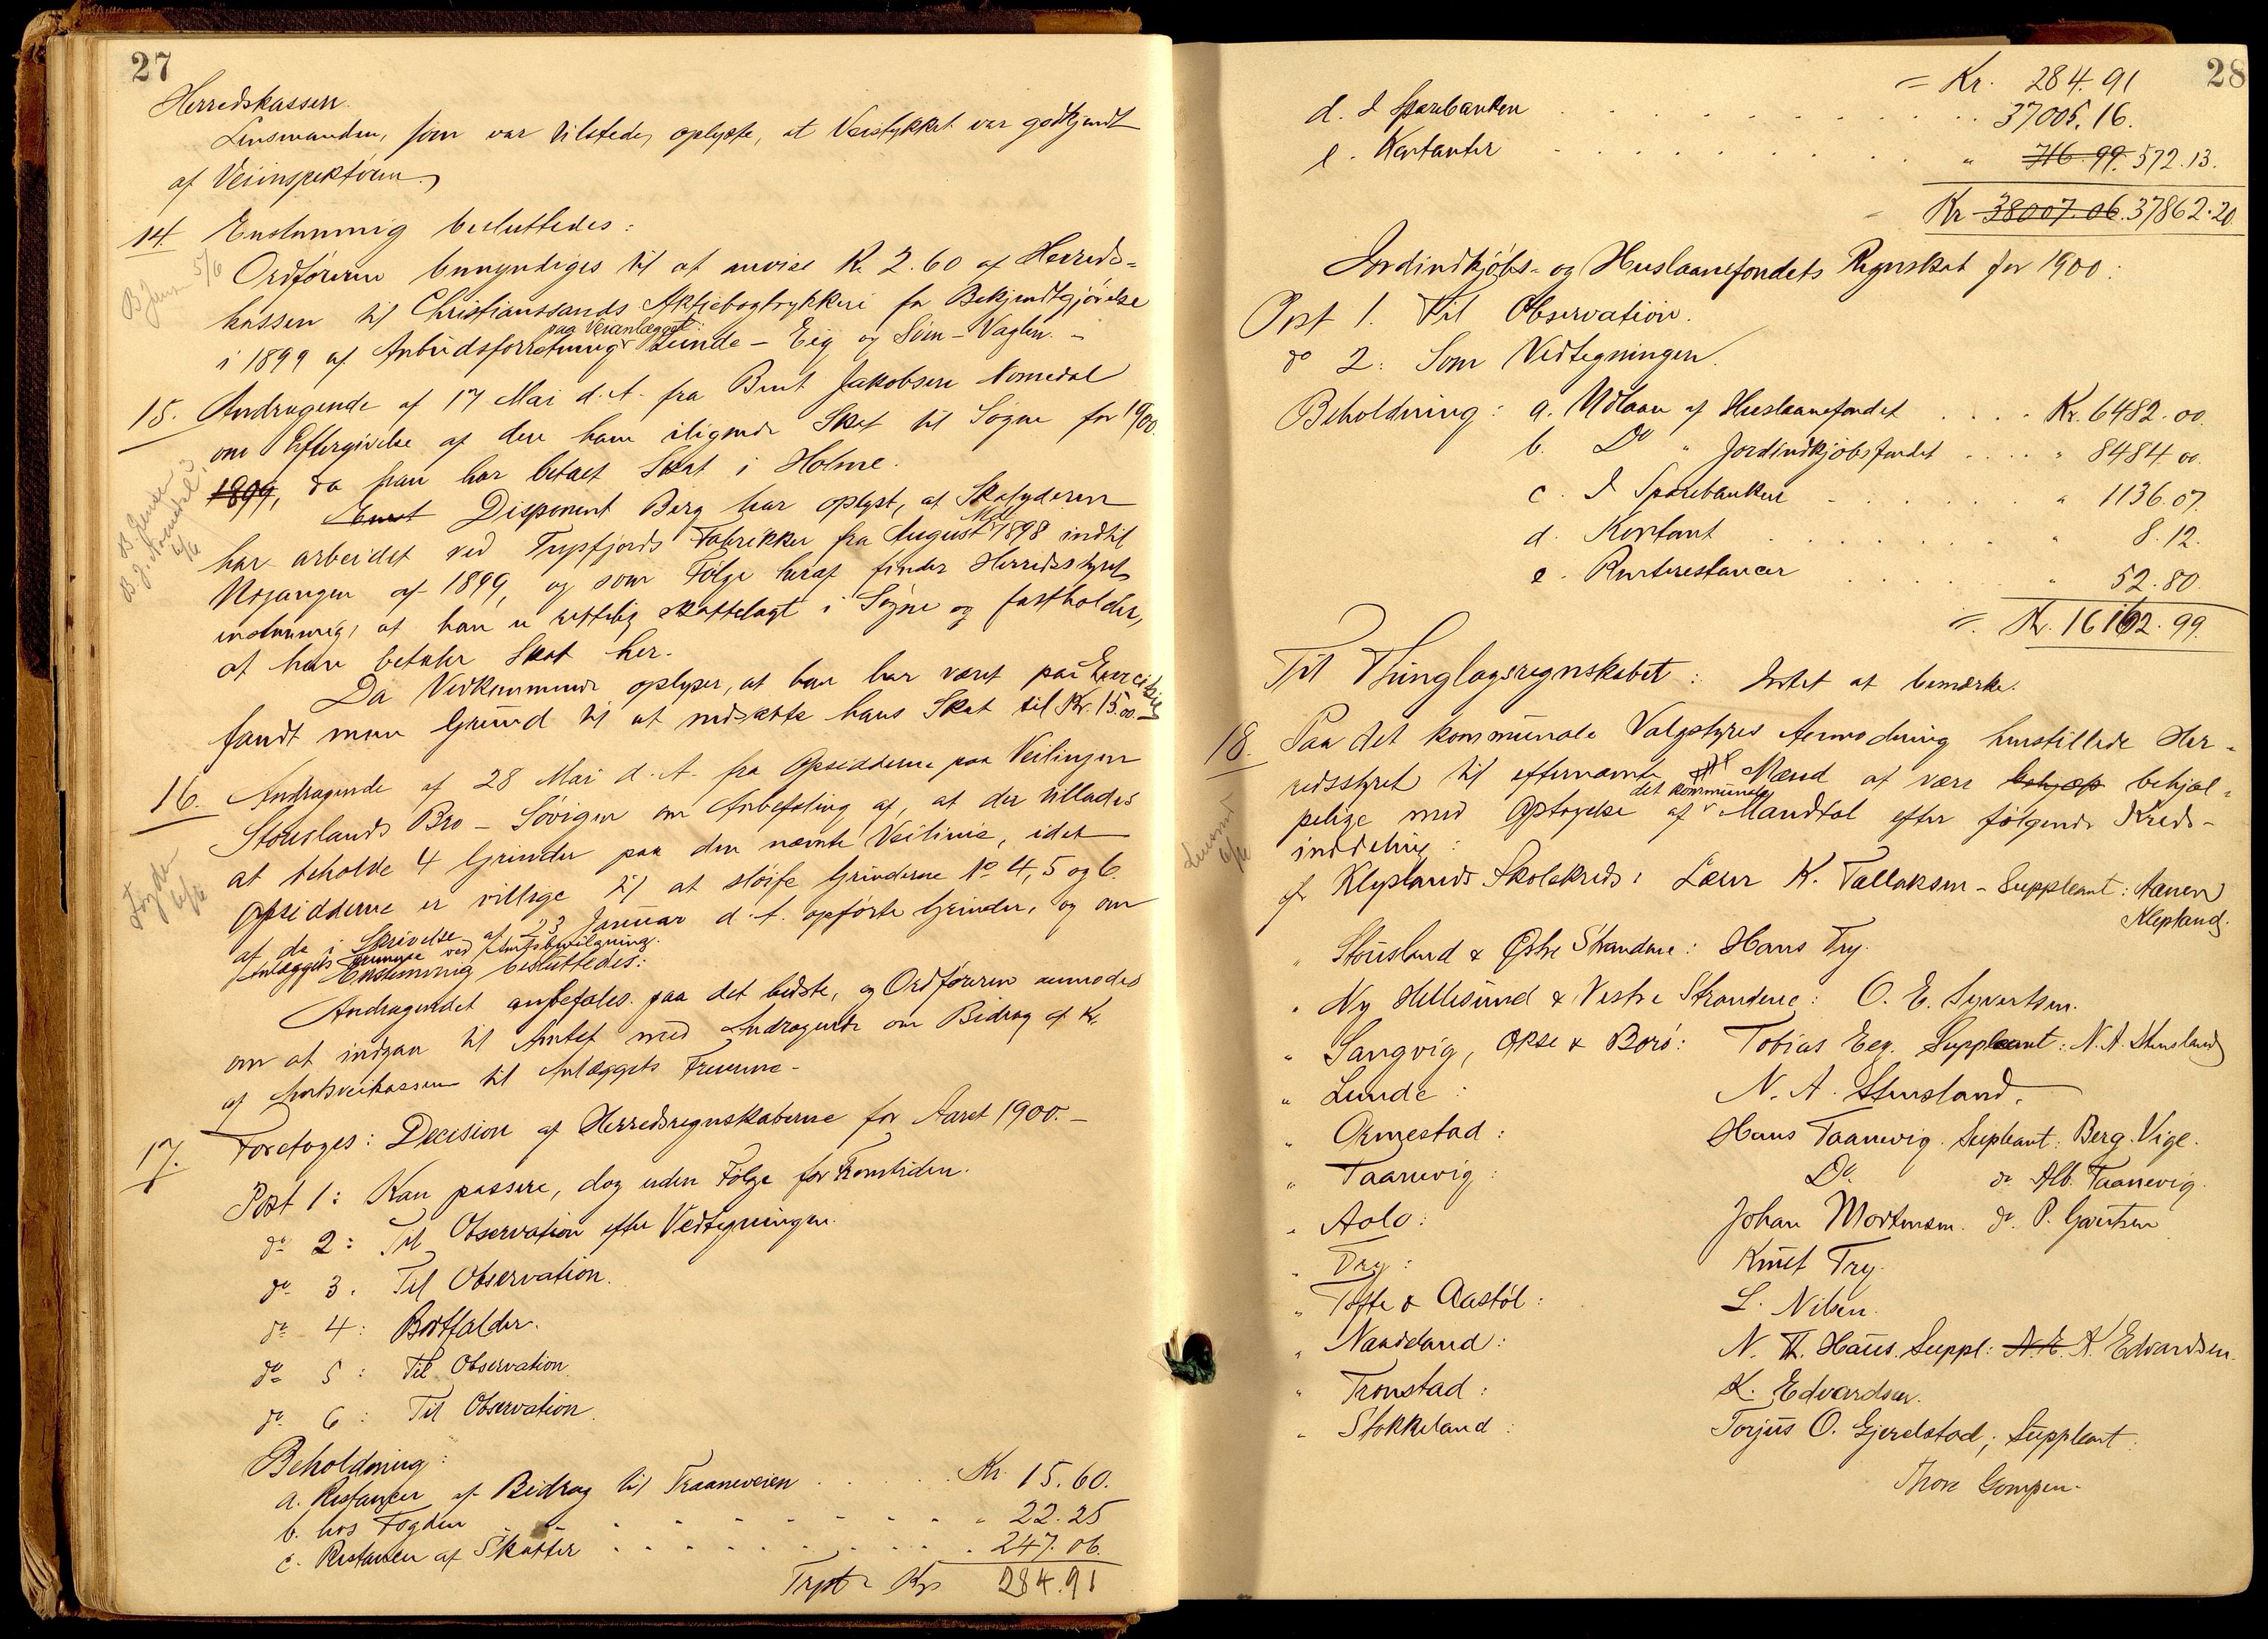 27
Herredskassen.
Lensmanden, som var tilstede, oplyste, at Veistykket var godkjendt
af Veiinspektøren.
14. Enstemmig besluttedes:
Ordføreren bemyndiges til at anvise Kr. 2.60 af Herreds-
kassen til Christianssands Aktiebogtrykkeri for Bekjendtgjørelse
paa Veianlægget
i 1899 af Anbudsforretning Lunde - Eig og Siim - Vaglen. -
15. Andragende af 17 Mai d. A. fra Bent Jakobsen Nomedal
om Eftergivelse af den ham ilignede Skat til Søgne for 1900.
1899, da han har betalt Skat i Holme.
Disponent Berg har oplyst, at Skatyderen
har arbeidet ved Trysfjords Fabrikker fra August Md 1898 indtil
Udgangen af 1899, og som Følge heraf finder Herredsstyret
enstemmig, at han er rettelig skattelagt i Søgne og fastholder,
at han betaler Skat her.
Da Vedkommende oplyser, at han har været paa Exercitsie
fandt man Grund til at nedsætte hans Skat til Kr. 15.00
16. Andragende af 28 Mai d. A. fra Opsidderne paa Veilinjen
Stouslands Bro - Søvigen om Anbefaling af, at der tillades
at beholde 4 Grinder paa den nævnte Veilinie, idet
Opsidderne er villige til at sløife Grinderne No 4, 5 og 6
af de i Skrivelse af 23 Januar d. A. opførte Grinder, og om
Anlæggets Fremme ved Amtsbevilgning.
Enstemmig besluttedes:
Andragendet anbefales paa det bedste, og Ordføreren anmodes
om at indgaa til Amtet med Andragende om Bidrag af Kr.
af Amtsveikassen til Anlæggets Fremme -
17. Foretoges: Decision af Herredsregnskaberne for Aaret 1900. -
Post 1: Kan passere, dog uden Følge for Fremtiden.
do 2: Til Observation efter Vedtegningen.
do 3. Til Observation.
do 4: Bortfalder.
do 5: Til Observation.
do 6: Til Observation.
Beholdning:
a. Restancer af Bidrag til Traaneveien . . . . Kr. 15.60.
b. hos Fogden " 22.25
c. Restancer af Skatter . . . . 247.06.
Trpt = Kr 284.91
28
= Kr. 284.91
d. I Sparebanken . . . . 37005.16.
e. Kontanter . . . . " 716.99. 572.13.
Kr 38007.06. 37862.20
Jordindkjøbs- og Huslaanefondets Regnskab for 1900:
Post 1. Til Observation.
do 2: Som Vedtegningen.
Beholdning: a. Udlaan af Huslaanefondet . . . . Kr. 6482.00.
b. Do " Jordindkjøbsfondet . . . . " 8484.00.
c. I Sparebanken . . . . " 1136.07.
d. Kontant . . . . " 8.12.
e. Renterestancer . . . . " 52.80.
= Kr. 16162.99.
Til Thinglagsregnskabet: Intet at bemærke.
18. Paa det kommunale Valgstyres Anmodning henstillede Her-
redsstyret til efternævnte Mænd at være behjæl-
det kommunale
pelige med Optagelse af Mandtal efter følgende Kreds-
inddeling:
for Kleplands Skolekreds: Lærer K. Tallaksen - Suppleant: Aanen
Klepland.
" Stousland & Østre Strandene: Hans Try.
" Ny Hellesund & Vestre Strandene: O. E. Syvertsen.
" Langvig, Okse & Borø: Tobias Eeg. Suppleant: N. A. Stensland
" Lunde: N. A. Stensland.
" Ormestad: Hans Taanevig. Supleant: Berg. Vige.
" Taanevig: Do do Alb. Taanevig.
" Aolo: Johan Mortensen. do P. Gauitsen
" Try: Knut Try.
" Tofte & Aastøl: L. Nilsen.
" Naadeland: N. Th. Haus. Suppl: N. E. K. Edvardsen.
" Tronstad: K. Edvardsen.
" Stokkeland: Torjus O. Gjerdstad; Suppleant:
Thore Gompen.